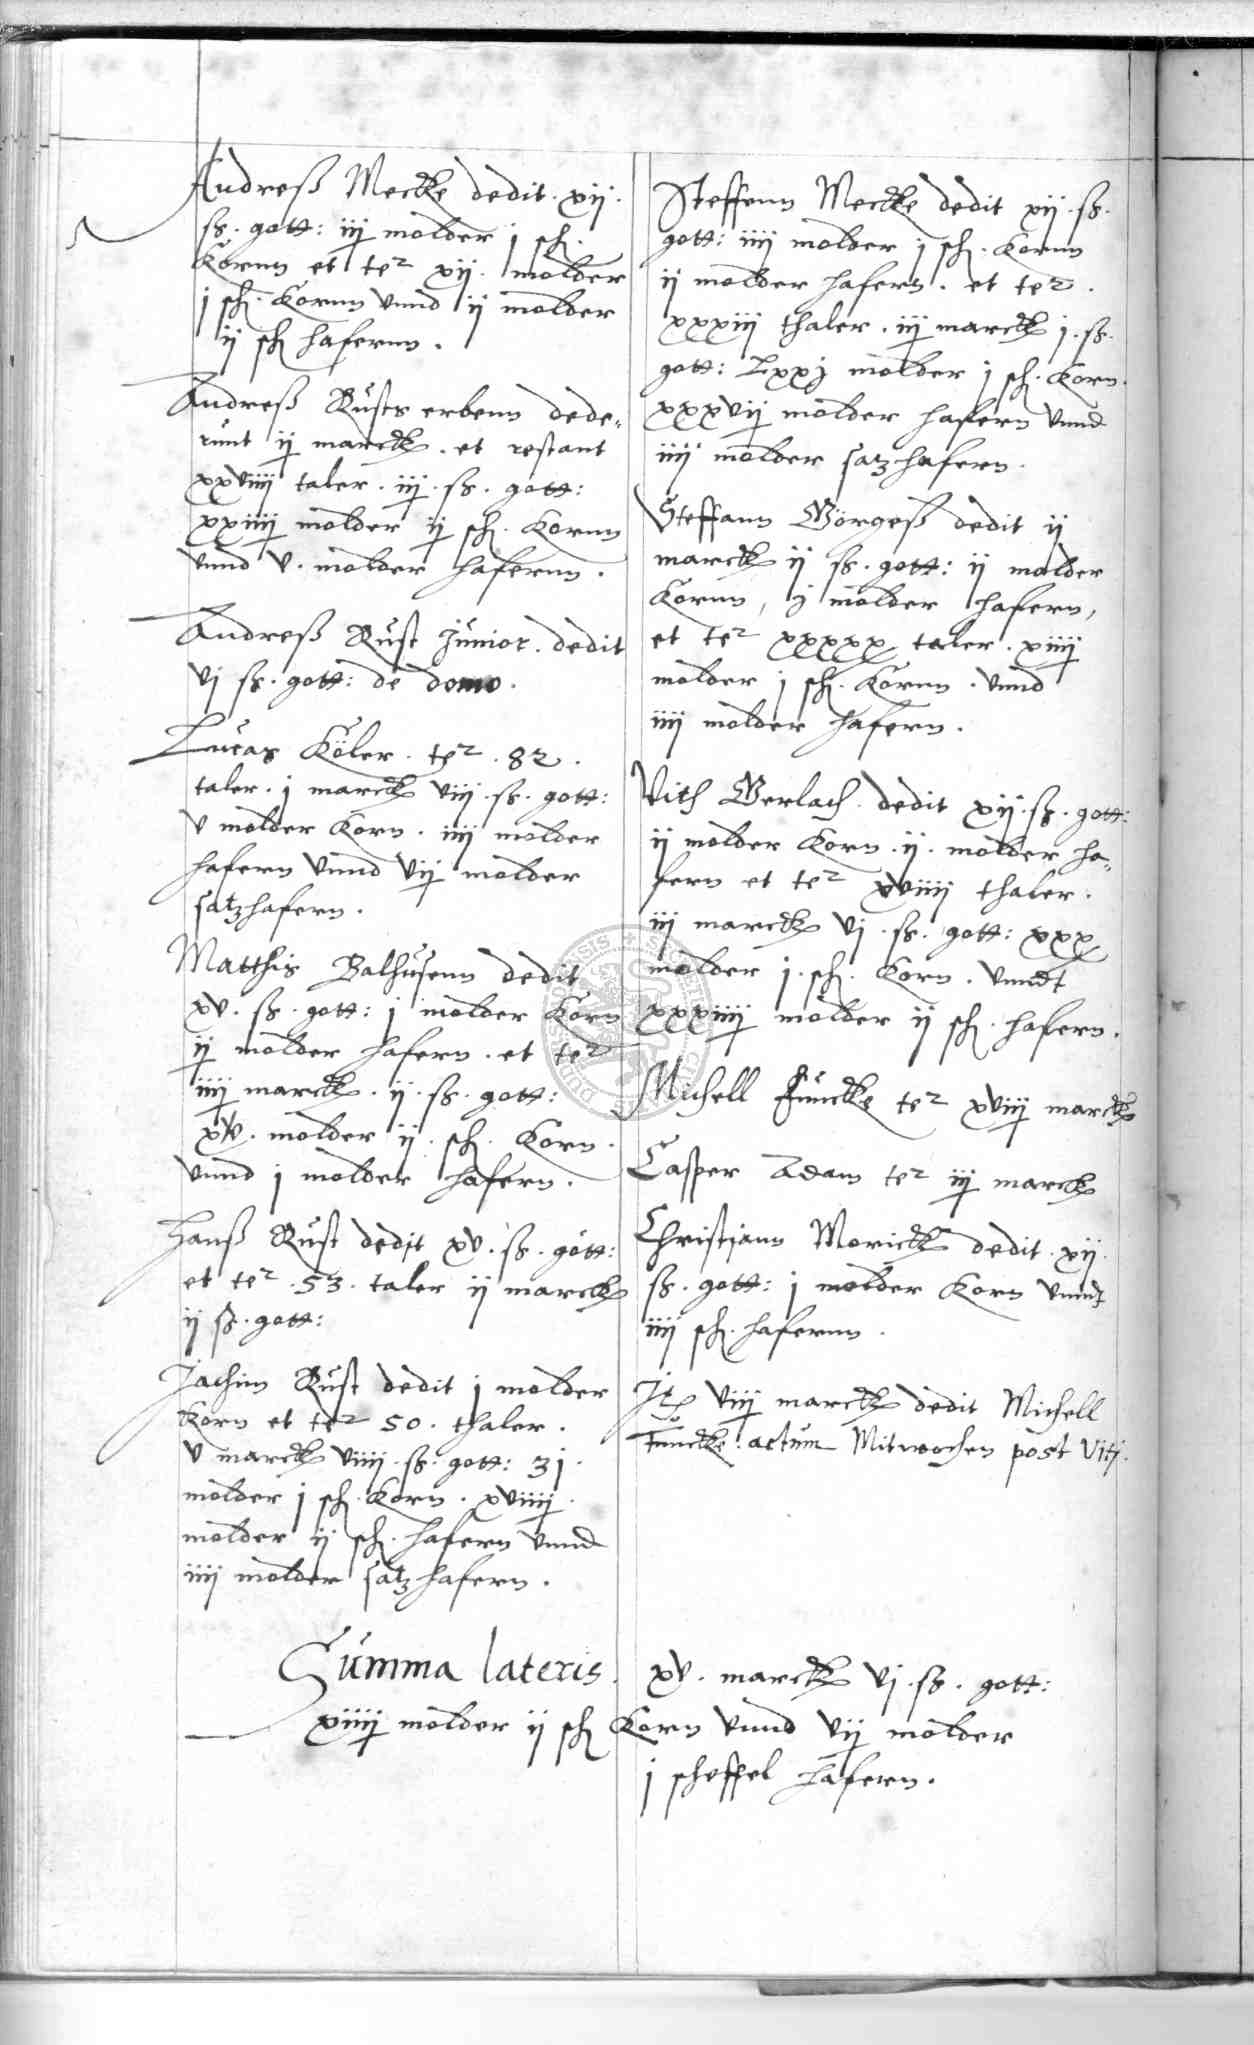 Andreß Mecke dedit . xij .
ß . gott : iiij molder j sch .
Kornn et tet² xij . molder
j sch . Kornn vnnd ij molder
ij sch hafernn .
Andreß Rusts erbenn dede„
runt ij marck . et restant
xxviiij taler . iij . ß . gott :
xxiiij molder ij sch . Kornn
vnnd v . molder hafernn .
Andreß Rust Junior . dedit
vj ß . gott : de domo .
Lucas Köler . tet² . 82 .
taler . j marck viij . ß . gott :
v molder Korn . iiij molder
hafern vnnd vij molder
satzhafern .
Matthis Balhusenn dedit
xv . ß . gott : j molder Korn
ij molder hafern . et tet²
iiij marck . ij . ß . gott :
xv . molder ij . sch . Korn .
vnnd j molder hafern .
Hanß Rust dedit xv . ß . gott :
et tet² . 53 . taler ij marck
ij ß . gott :
Jachim Rust dedit j molder
Korn et tet² 50 . thaler .
v marck viiij . ß . gott : 31 .
molder j sch . Korn . xviiij .
molder ij sch . hafern vnnd
iiij molder satzhafern .
Steffenn Mecke dedit xij . ß .
gott : iiij molder j sch . Kornn
ij molder hafern . et tet² .
xxxiij thaler . iij marck j . ß .
gott : Lxxj molder j sch . Korn .
xxxvij molder hafern vnnd
iiij molder satzhafern .
Steffann Görgeß dedit ij
marck ij ß . gott : ij molder
Kornn , j molder hafern ,
et tet² xxxxx taler . xiiij
molder j sch . Kornn . vnnd
iiij molder hafern .
Vith Gerlach . dedit xij . ß . gott :
ij molder Korn . ij . molder ha„
fern et tet² xviiij thaler .
iij marck vj . ß . gott : xxx
molder j . sch . Korn . vnndt
xxxiiij molder ij sch . hafern .
Michell Funcke tet² xviij marck
Casper Adam tet² iij marck
Christiann Morick dedit . xij .
ß . gott : j molder Korn vnndt
iiij sch . hafernn .
It viij marck dedit Michell
Funcke . actum Mitwochen post Viti .
Summa lateris . xv . marck vj . ß . gott :
xiiij molder ij sch Korn vnnd vij molder
j scheffel hafern .